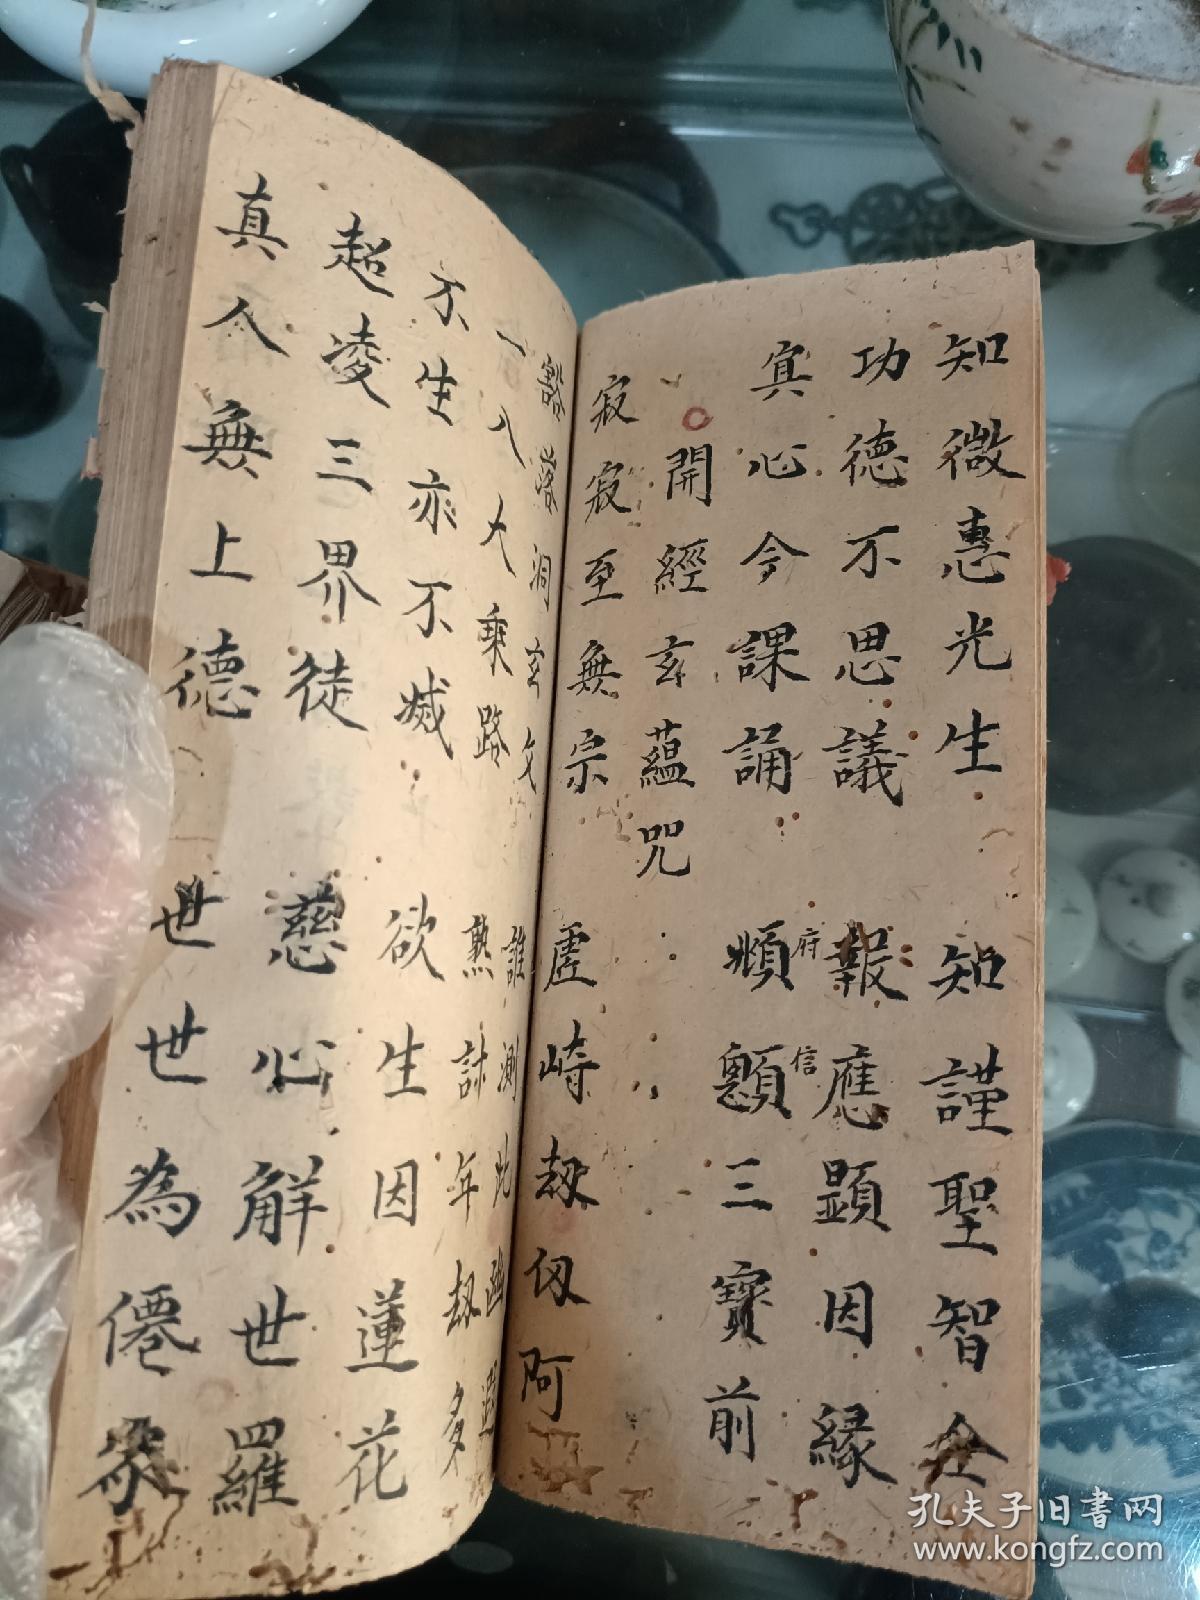 知微惠光生 知謹聖智全
功德不思議 報應顯因緣
府 信
真心今課誦 頫顖三寶前
開經玄蘊咒
寂寂至無宗 虛峙刼仞阿
豁落洞玄文 誰測此幽遐
一入大乘路 熟計年刼多
不生亦不滅 欲生因蓮花
超凌三界徒 慈心解世羅
真人無上德 世世為僊家
孔夫子旧书网
www.kongfz.com